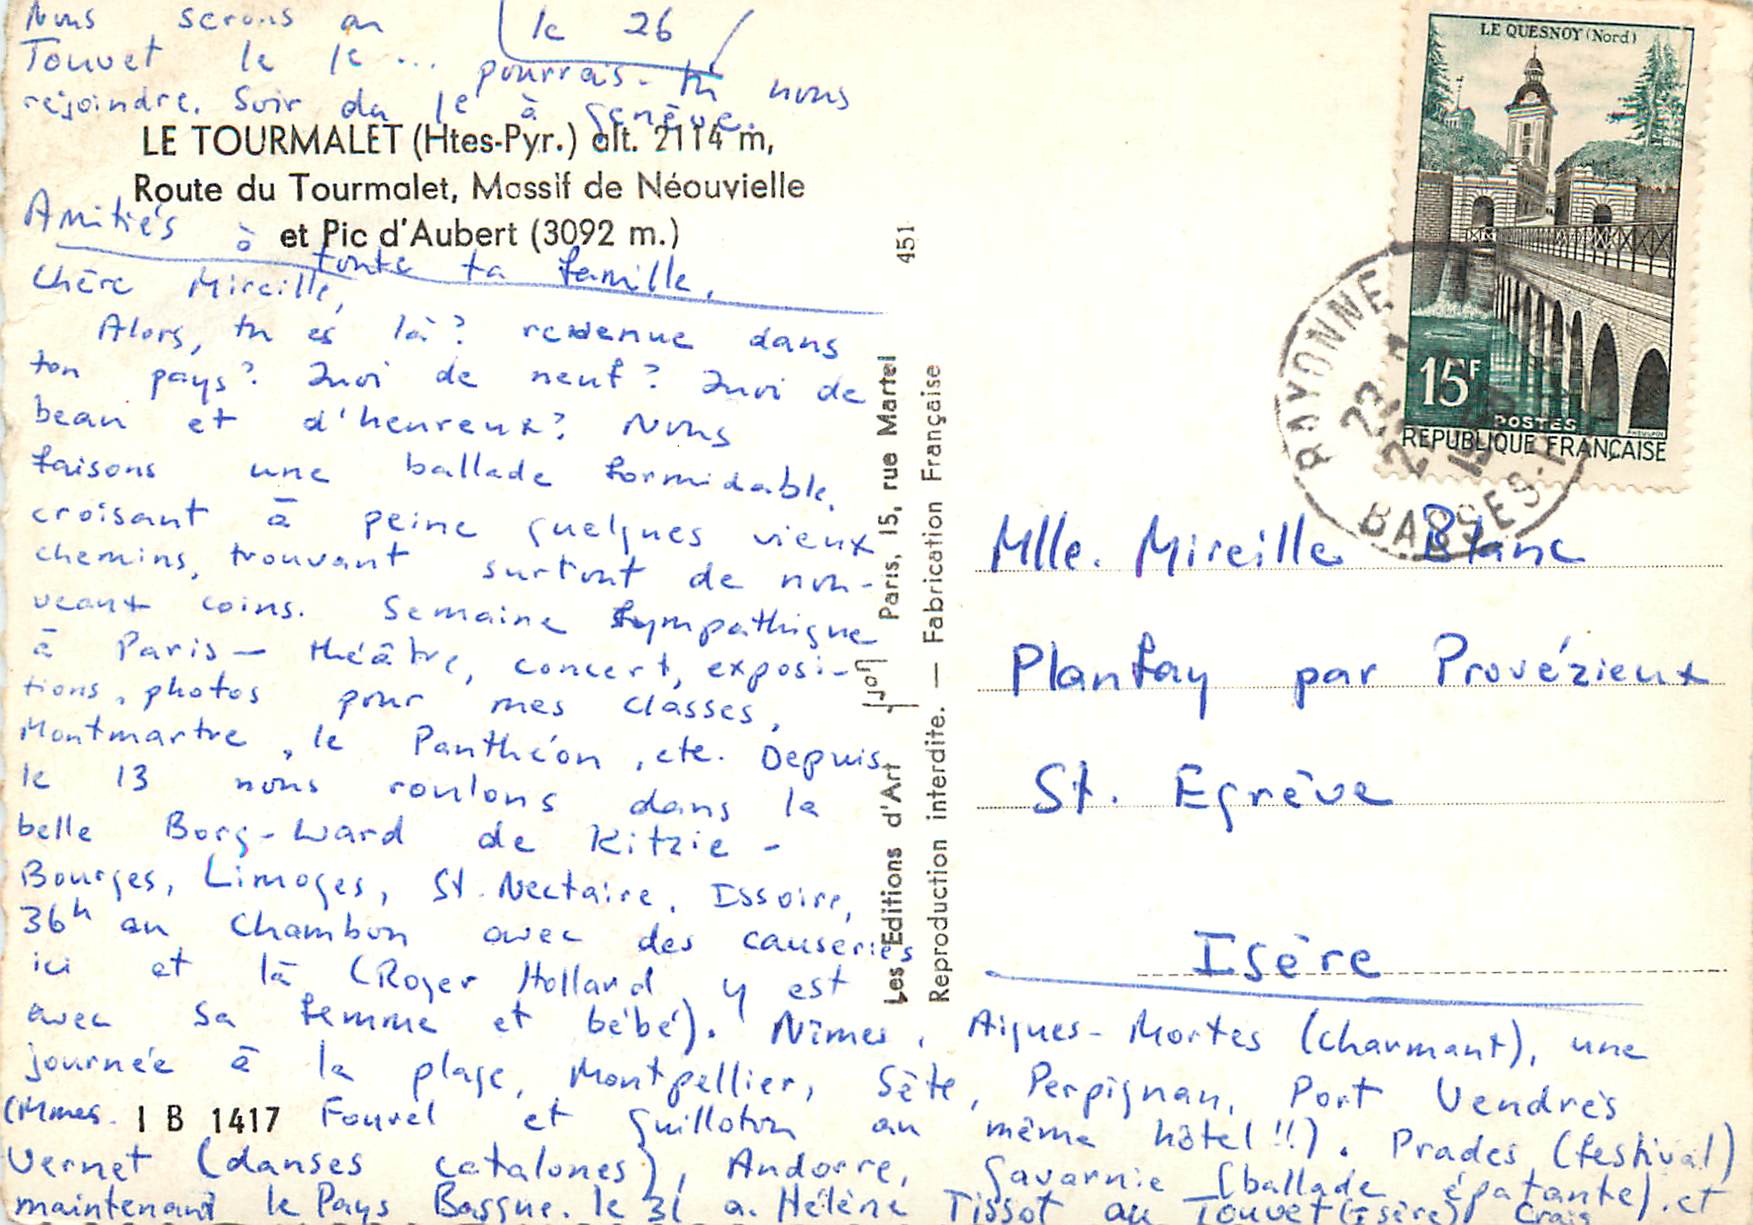 Nous serons au
le 26
Touvet le 1e... pourrais-tu nous
rejoindre. Soir du 1e à Genève.
LE TOURMALET (Htes-Pyr.) alt. 2114 m,
Route du Tourmalet, Massif de Néouvielle
et Pic d'Aubert (3092 m.)
Amitiés à toute ta famille.
Chère Mireille,
Alors, tu es là? revenue dans
ton pays? Quoi de neuf? Quoi de
beau et d'heureux? Nous
faisons une ballade formidable,
croisant à peine quelques vieux
chemins, trouvant surtout de nou-
veaux coins. Semaine sympathique
à Paris — théâtre, concert, exposi-
tions, photos pour mes classes,
Montmartre, le Panthéon, etc. Depuis
le 13 nous roulons dans la
belle Borg-Ward de Kitzie -
Bourges, Limoges, St. Nectaire, Issoire,
36h au Chambon avec des causeries
ici et là (Roger Holland y est
avec sa femme et bébé). Nîmes, Aigues-Mortes (charmant), une
journée à la plage, Montpellier, Sète, Perpignan, Port Vendres
(Mmes. Fourel et Guilloton au même hôtel!!). Prades (festival)
I B 1417
Vernet (danses catalanes), Andorre, Gavarnie (ballade épatante). et
maintenant le Pays Basque. le 31 a. Hélène Tissot au Touvet (Isère)
Les Editions d'Art Yvon Paris, 15, rue Martel
451
Reproduction interdite. — Fabrication Française
LE QUESNOY (Nord)
15F
POSTES
REPUBLIQUE FRANÇAISE
BAYONNE
BASSES-P
Mlle. Mireille Blanc
Planfay par Provézieux
St. Egrève
Isère